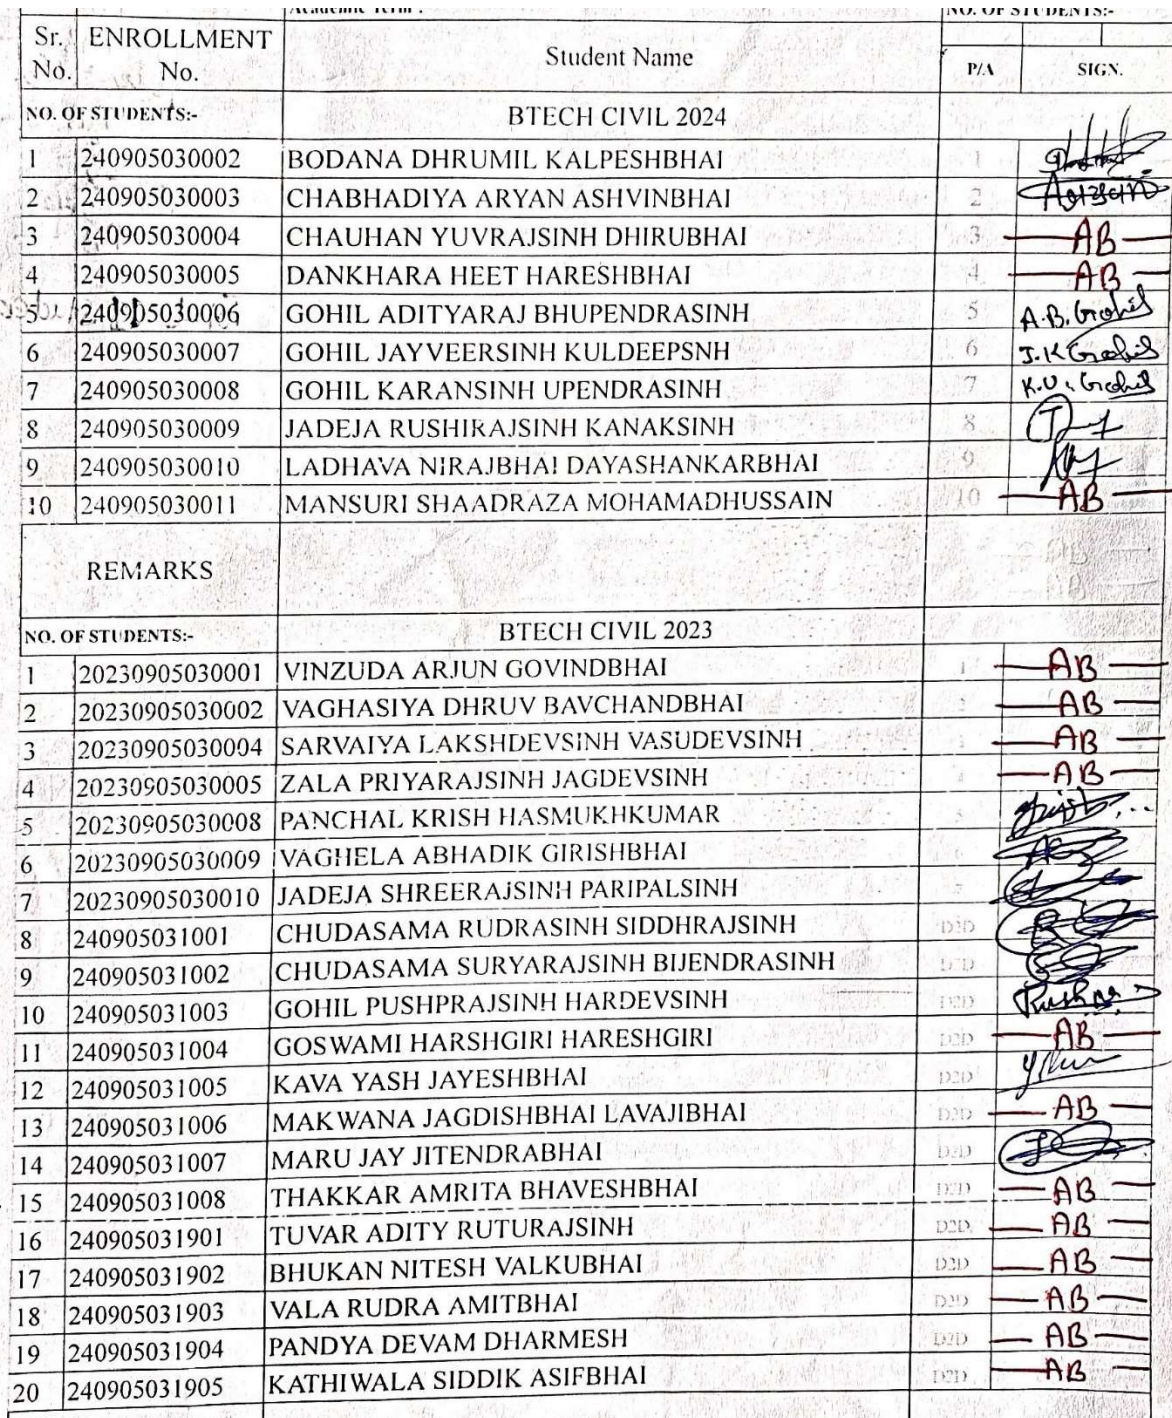 Academic Term :
NO. OF STUDENTS:-
Sr. No. ENROLLMENT No. Student Name P/A SIGN.
NO. OF STUDENTS:- BTECH CIVIL 2024
1 240905030002 BODANA DHRUMIL KALPESHBHAI 1
2 240905030003 CHABHADIYA ARYAN ASHVINBHAI 2
3 240905030004 CHAUHAN YUVRAJSINH DHIRUBHAI 3 AB
4 240905030005 DANKHARA HEET HARESHBHAI 4 AB
5 240905030006 GOHIL ADITYARAJ BHUPENDRASINH 5 A.B.Gohil
6 240905030007 GOHIL JAYVEERSINH KULDEEPSNH 6 J.K Gohil
7 240905030008 GOHIL KARANSINH UPENDRASINH 7 K.U.Gohil
8 240905030009 JADEJA RUSHIRAJSINH KANAKSINH 8
9 240905030010 LADHAVA NIRAJBHAI DAYASHANKARBHAI 9
10 240905030011 MANSURI SHAADRAZA MOHAMADHUSSAIN 10 AB
REMARKS
NO. OF STUDENTS:- BTECH CIVIL 2023
1 20230905030001 VINZUDA ARJUN GOVINDBHAI 1 AB
2 20230905030002 VAGHASIYA DHRUV BAVCHANDBHAI AB
3 20230905030004 SARVAIYA LAKSHDEVSINH VASUDEVSINH AB
4 20230905030005 ZALA PRIYARAJSINH JAGDEVSINH AB
5 20230905030008 PANCHAL KRISH HASMUKHKUMAR
6 20230905030009 VAGHELA ABHADIK GIRISHBHAI
7 20230905030010 JADEJA SHREERAJSINH PARIPALSINH
8 240905031001 CHUDASAMA RUDRASINH SIDDHRAJSINH D2D
9 240905031002 CHUDASAMA SURYARAJSINH BIJENDRASINH D2D
10 240905031003 GOHIL PUSHPRAJSINH HARDEVSINH D2D
11 240905031004 GOSWAMI HARSHGIRI HARESHGIRI D2D AB
12 240905031005 KAVA YASH JAYESHBHAI D2D
13 240905031006 MAKWANA JAGDISHBHAI LAVAJIBHAI D2D AB
14 240905031007 MARU JAY JITENDRABHAI D2D
15 240905031008 THAKKAR AMRITA BHAVESHBHAI D2D AB
16 240905031901 TUVAR ADITY RUTURAJSINH D2D AB
17 240905031902 BHUKAN NITESH VALKUBHAI D2D AB
18 240905031903 VALA RUDRA AMITBHAI D2D AB
19 240905031904 PANDYA DEVAM DHARMESH D2D AB
20 240905031905 KATHIWALA SIDDIK ASIFBHAI D2D AB